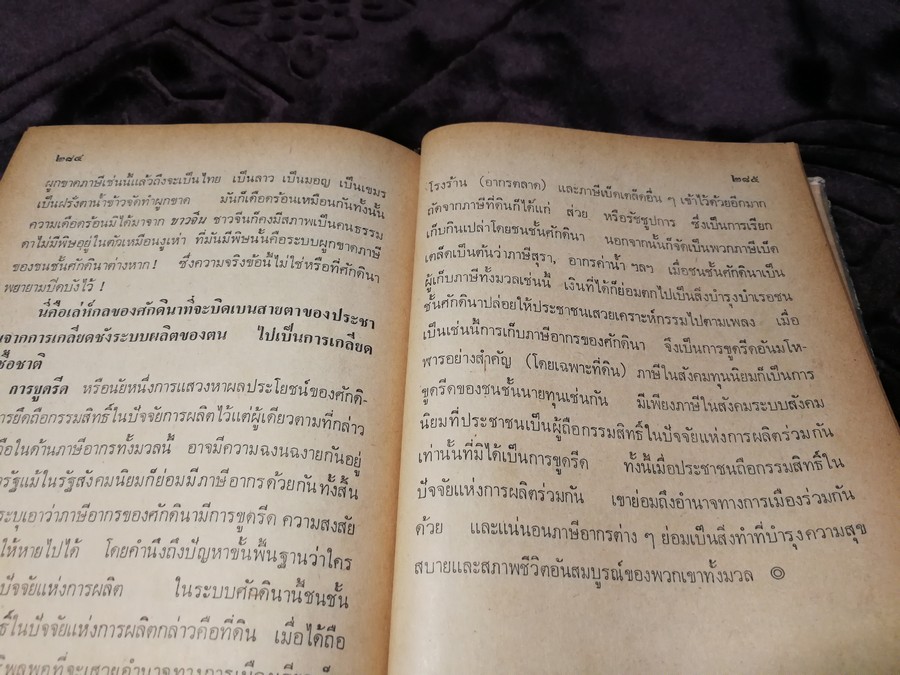 ๒๘๔
ผูกขาดภาษีเช่นนี้แล้วถึงจะเป็นไทย เป็นลาว เป็นมอญ เป็นเขมร
เป็นฝรั่งดาน้ำข้าวจัดทำผูกขาด มันก็เดือดร้อนเหมือนกันทั้งนั้น
ความเดือดร้อนมิได้มาจาก ชาวจีน ชาวจีนก็คงมีสภาพเป็นคนธรรม
ดาไม่มีพิษอยู่ในตัวเหมือนงูเห่า ที่มันมีพิษนั้นคือระบบผูกขาดภาษี
ของชนชั้นศักดินาต่างหาก! ซึ่งความจริงข้อนี้ไม่ใช่หรือที่ศักดินา
พยายามปิดบังไว้ !
นี่คือเล่ห์กลของศักดินาที่จะบิดเบนสายตาของประชา
จากการเกลียดชังระบบผลิตของตน ไปเป็นการเกลียด
ชื้อชาติ
การขูดรีด หรือนัยหนึ่งการแสวงหาผลประโยชน์ของศักดิ-
การยึดถือกรรมสิทธิ์ในปัจจัยการผลิตไว้แต่ผู้เดียวตามที่กล่าว
ถือในด้านภาษีอากรทั้งมวลนี้ อาจมีความฉงนฉงายกันอยู่
รัฐแม้ในรัฐสังคมนิยมก็ย่อมมีภาษีอากรด้วยกันทั้งสิ้น
ระบุเอาว่าภาษีอากรของศักดินามีการขูดรีด ความสงสัย
ให้หายไปได้ โดยคำนึงถึงปัญหาขั้นพื้นฐานว่าใคร
ปัจจัยแห่งการผลิต ในระบบศักดินานี้ชนชั้น
ธิ์ในปัจจัยแห่งการผลิตกล่าวคือที่ดิน เมื่อได้ถือ
พลพอที่จะเสวยอำนาจทางการเมือง
๒๘๕
โรงร้าน (อากรตลาด) และภาษีเบ็ดเตล็ดอื่น ๆ เข้าไว้ด้วยอีกมาก
ถัดจากภาษีที่ดินก็ได้แก่ ส่วย หรือรัชชูปการ ซึ่งเป็นการเรียก
เก็บกินเปล่าโดยชนชั้นศักดินา นอกจากนั้นก็จัดเป็นพวกภาษีเบ็ด
เตล็ดเป็นต้นว่าภาษีสุรา, อากรค่าน้ำ ฯลฯ เมื่อชนชั้นศักดินาเป็น
ผู้เก็บภาษีทั้งมวลเช่นนี้ เงินที่ได้ก็ย่อมตกไปเป็นสิ่งบำรุงบำเรอชน
ชั้นศักดินาปล่อยให้ประชาชนเสวยเคราะห์กรรมไปตามเพลง เมื่อ
เป็นเช่นนี้การเก็บภาษีอากรของศักดินา จึงเป็นการขูดรีดอันมโห-
ฬารอย่างสำคัญ (โดยเฉพาะที่ดิน) ภาษีในสังคมทุนนิยมก็เป็นการ
ขูดรีดของชนชั้นนายทุนเช่นกัน มีเพียงภาษีในสังคมระบบสังคม
นิยมที่ประชาชนเป็นผู้ถือกรรมสิทธิ์ในปัจจัยแห่งการผลิตร่วมกัน
เท่านั้นที่มิได้เป็นการขูดรีด ทั้งนี้เมื่อประชาชนถือกรรมสิทธิ์ใน
ปัจจัยแห่งการผลิตร่วมกัน เขาย่อมถึงอำนาจทางการเมืองร่วมกัน
ด้วย และแน่นอนภาษีอากรต่าง ๆ ย่อมเป็นสิ่งทำที่บำรุงความสุข
สบายและสภาพชีวิตอันสมบูรณ์ของพวกเขาทั้งมวล ◎